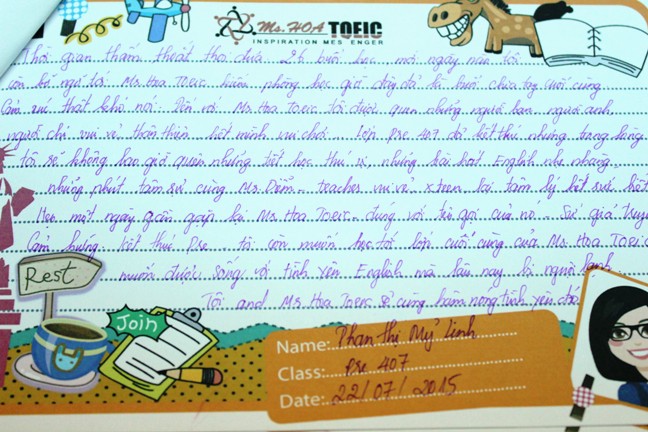 Ms. HOA TOEIC
INSPIRATION MES ENGER
Thời gian thấm thoắt thoi đưa 24 buổi học mới ngày nào tôi
còn bỡ ngỡ tới Ms Hoa Toeic, kiếm phòng học giờ đây đã là buổi chia tay cuối cùng
Cảm xúc thật khó nói. Đến với Ms Hoa Toeic tôi được quen những người bạn người anh,
người chị vui vẻ thân thiện hết mình vui chơi. Lớp Pre 407 đã kết thúc nhưng trong lòng
tôi sẽ không bao giờ quên những tiết học thú vị, những bài hát English nhẹ nhàng,
những phút tâm sự cùng Ms. Diễm - teacher vui vẻ xteen lại tâm lý hết sức
Hẹn một ngày gần gặp lại Ms Hoa Toeic - đúng với tên gọi của nó Sứ giả truyền
Cảm hứng. Kết thúc Pre tôi còn muốn học tới lớp cuối cùng của Ms. Hoa Toeic
muốn được sống với tình yêu English mà lâu nay bị nguội lạnh
Tôi and Ms Hoa Toeic sẽ cùng hâm nóng tình yêu đó
Rest
Join
Name: Phan Thị Mỹ Linh
Class: Pre 407
Date: 22/07/2015